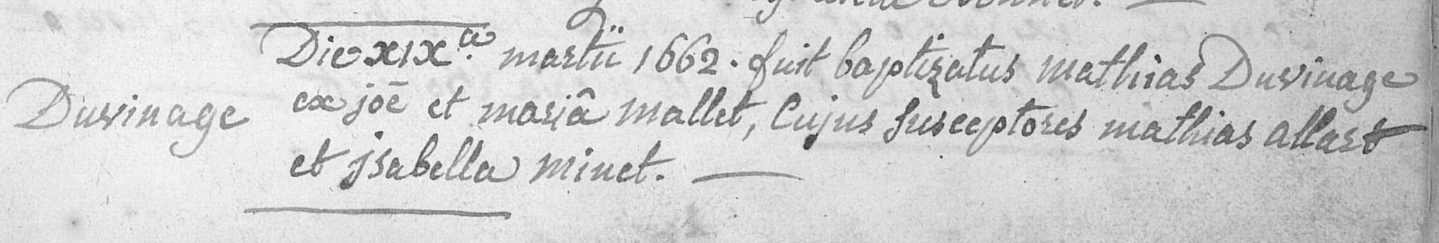 Die XIXa. martii 1662. fuit baptizatus mathias Duvinage
Duvinage
ex joē et mariâ mallet, Cujus susceptores mathias allart
et jsabella minet. —